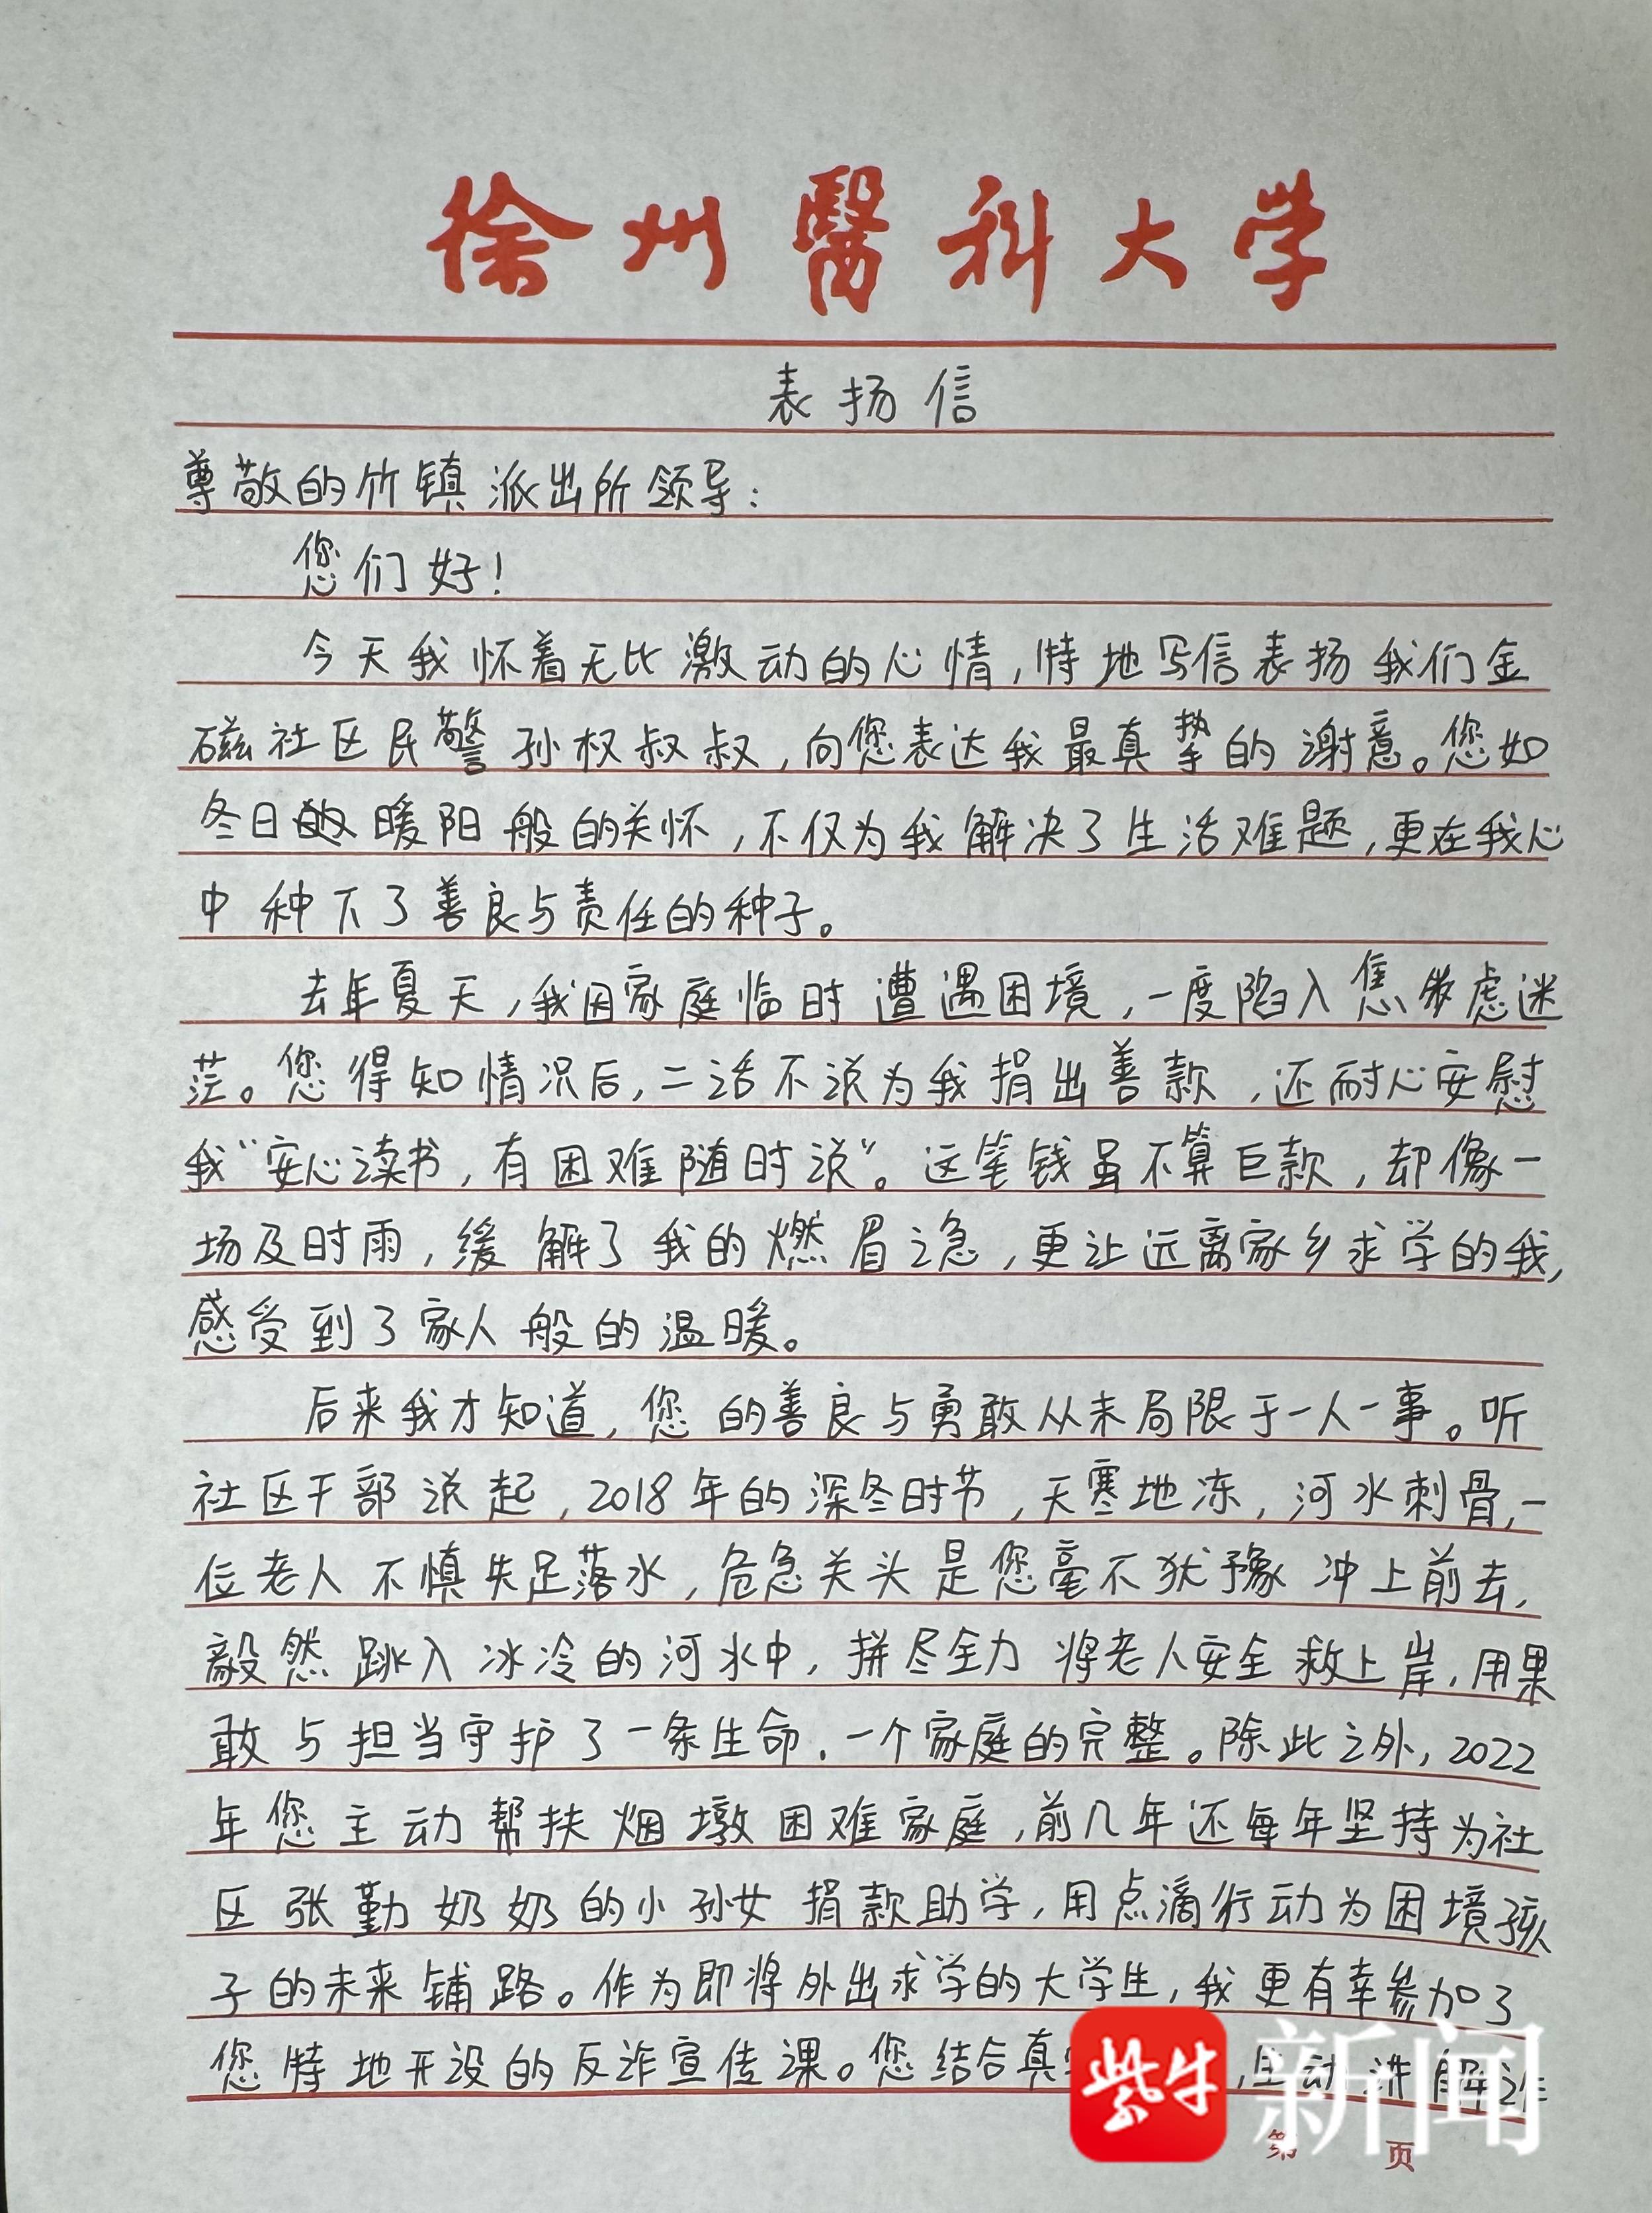 徐州醫科大学
表扬信
尊敬的竹镇派出所领导：
您们好！
今天我怀着无比激动的心情，特地写信表扬我们金
磁社区民警孙权叔叔，向您表达我最真挚的谢意。您如
冬日的暖阳般的关怀，不仅为我解决了生活难题，更在我心
中种下了善良与责任的种子。
去年夏天，我因家庭临时遭遇困境，一度陷入焦虑迷
茫。您得知情况后，二话不说为我捐出善款，还耐心安慰
我“安心读书，有困难随时说”。这笔钱虽不算巨款，却像一
场及时雨，缓解了我的燃眉之急，更让远离家乡求学的我，
感受到了家人般的温暖。
后来我才知道，您的善良与勇敢从未局限于一人一事。听
社区干部说起，2018年的深冬时节，天寒地冻，河水刺骨，一
位老人不慎失足落水，危急关头是您毫不犹豫冲上前去，
毅然跳入冰冷的河水中，拼尽全力将老人安全救上岸，用果
敢与担当守护了一条生命，一个家庭的完整。除此之外，2022
年您主动帮扶烟墩困难家庭，前几年还每年坚持为社
区张勤奶奶的小孙女捐款助学，用点滴行动为困境孩
子的未来铺路。作为即将外出求学的大学生，我更有幸参加了
您特地开设的反诈宣传课。您结合真，生动讲解诈
紫牛新闻
第 页